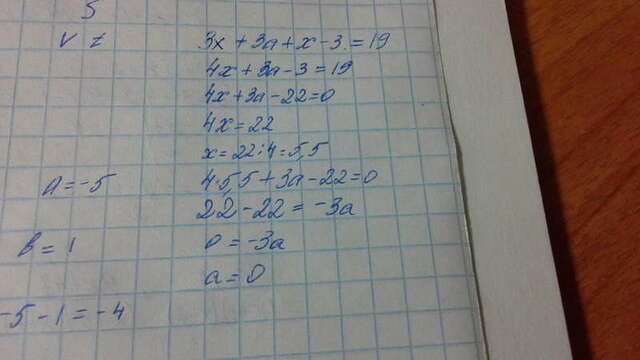 5
V z
3x + 3a + x - 3 = 19
4x + 3a - 3 = 19
4x + 3a - 22 = 0
4x = 22
x = 22 : 4 = 5,5
a = -5
4·5,5 + 3a - 22 = 0
22 - 22 = -3a
b = 1
0 = -3a
a = 0
-5 - 1 = -4